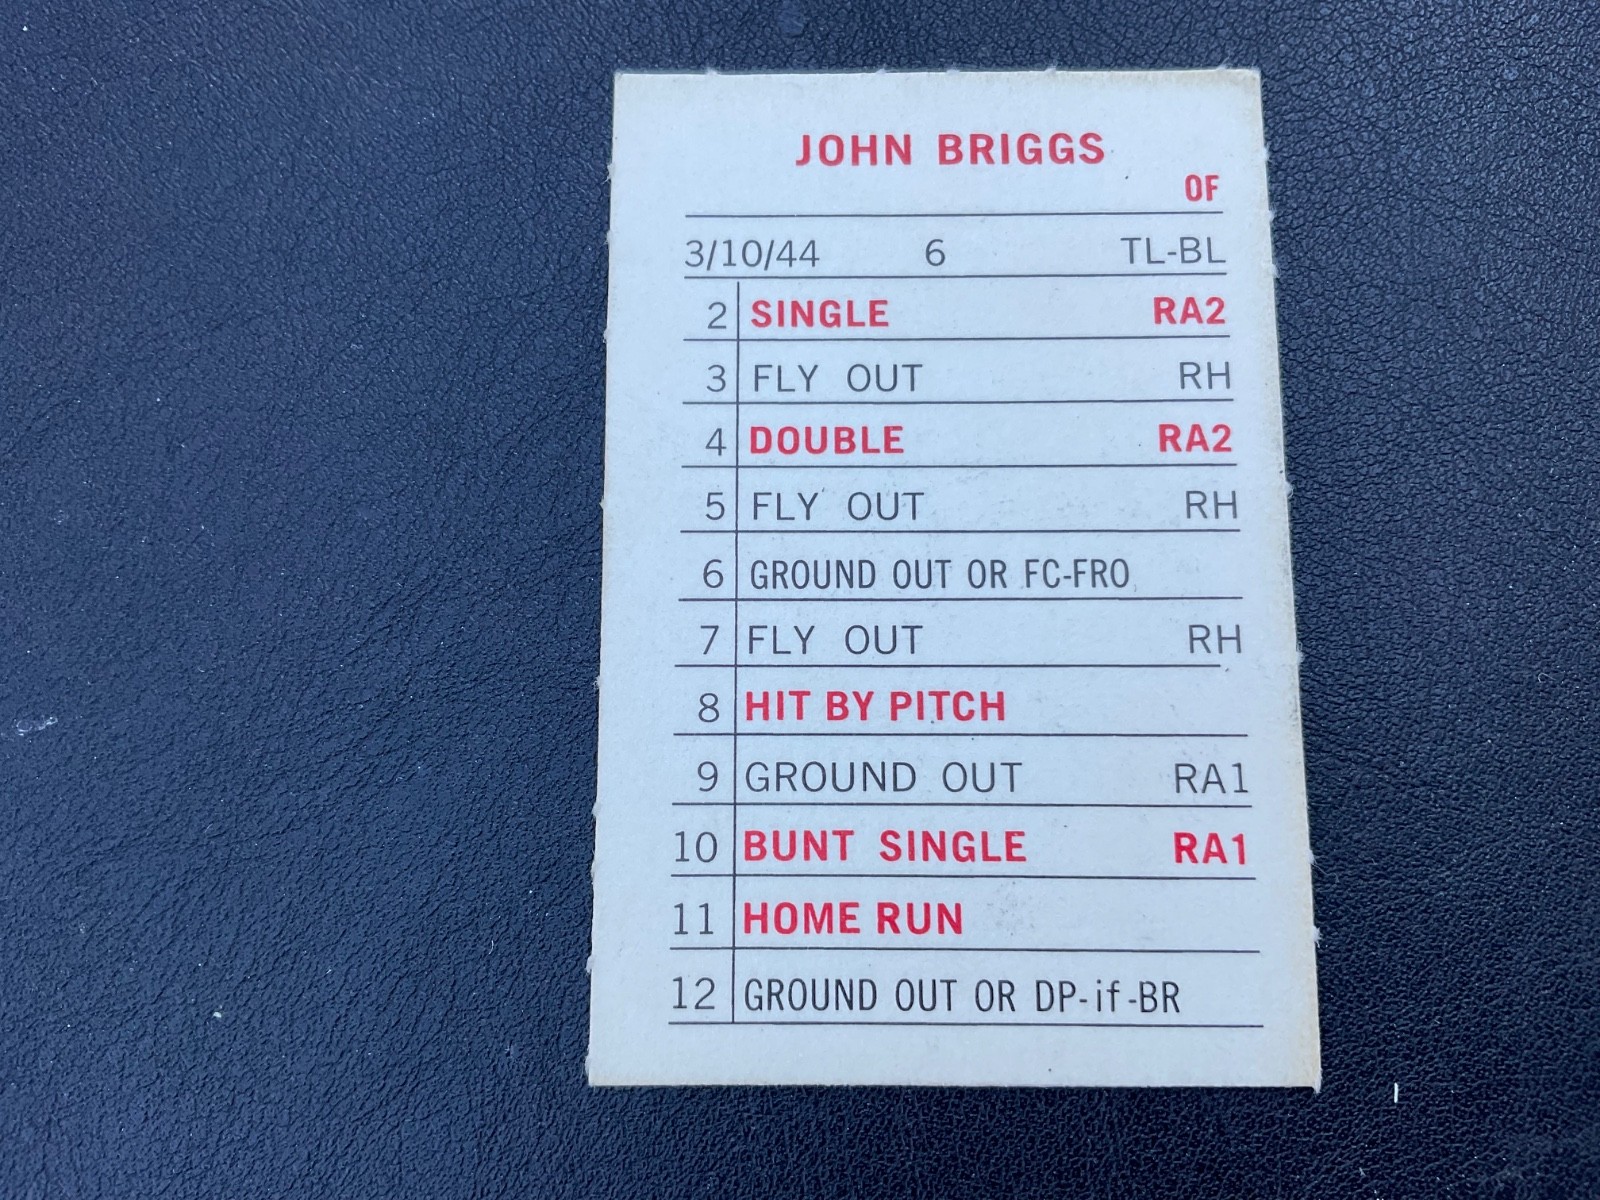 JOHN BRIGGS
OF
3/10/44 6 TL-BL
2 SINGLE RA2
3 FLY OUT RH
4 DOUBLE RA2
5 FLY OUT RH
6 GROUND OUT OR FC-FRO
7 FLY OUT RH
8 HIT BY PITCH
9 GROUND OUT RA1
10 BUNT SINGLE RA1
11 HOME RUN
12 GROUND OUT OR DP-if-BR